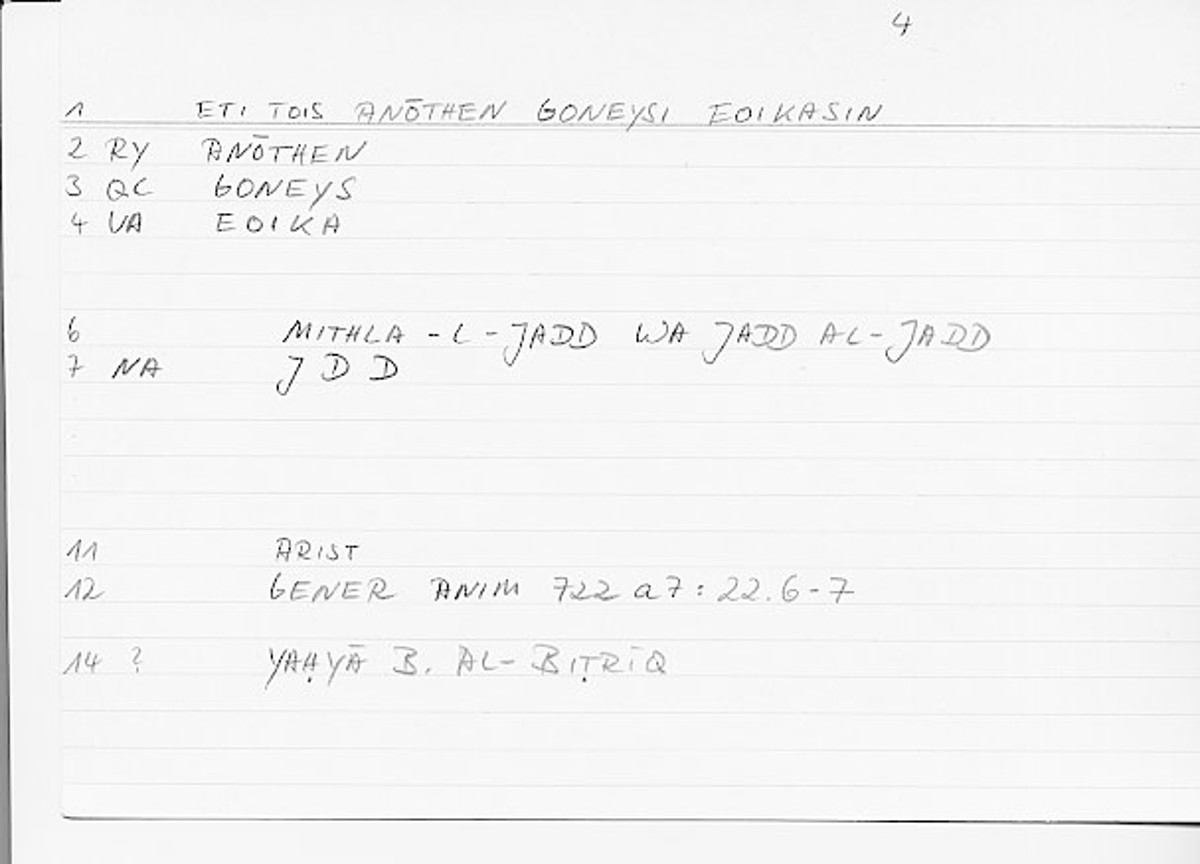 4
1 ETI TOIS ANŌTHEN GONEYSI EOIKASIN
2 RY ANŌTHEN
3 QC GONEYS
4 VA EOIKA
6 MITHLA -L-JADD WA JADD AL-JADD
7 NA JDD
11 ARIST
12 GENER ANIM 722 a7: 22.6-7
14 ? YAḤYĀ B. AL-BIṬRĪQ